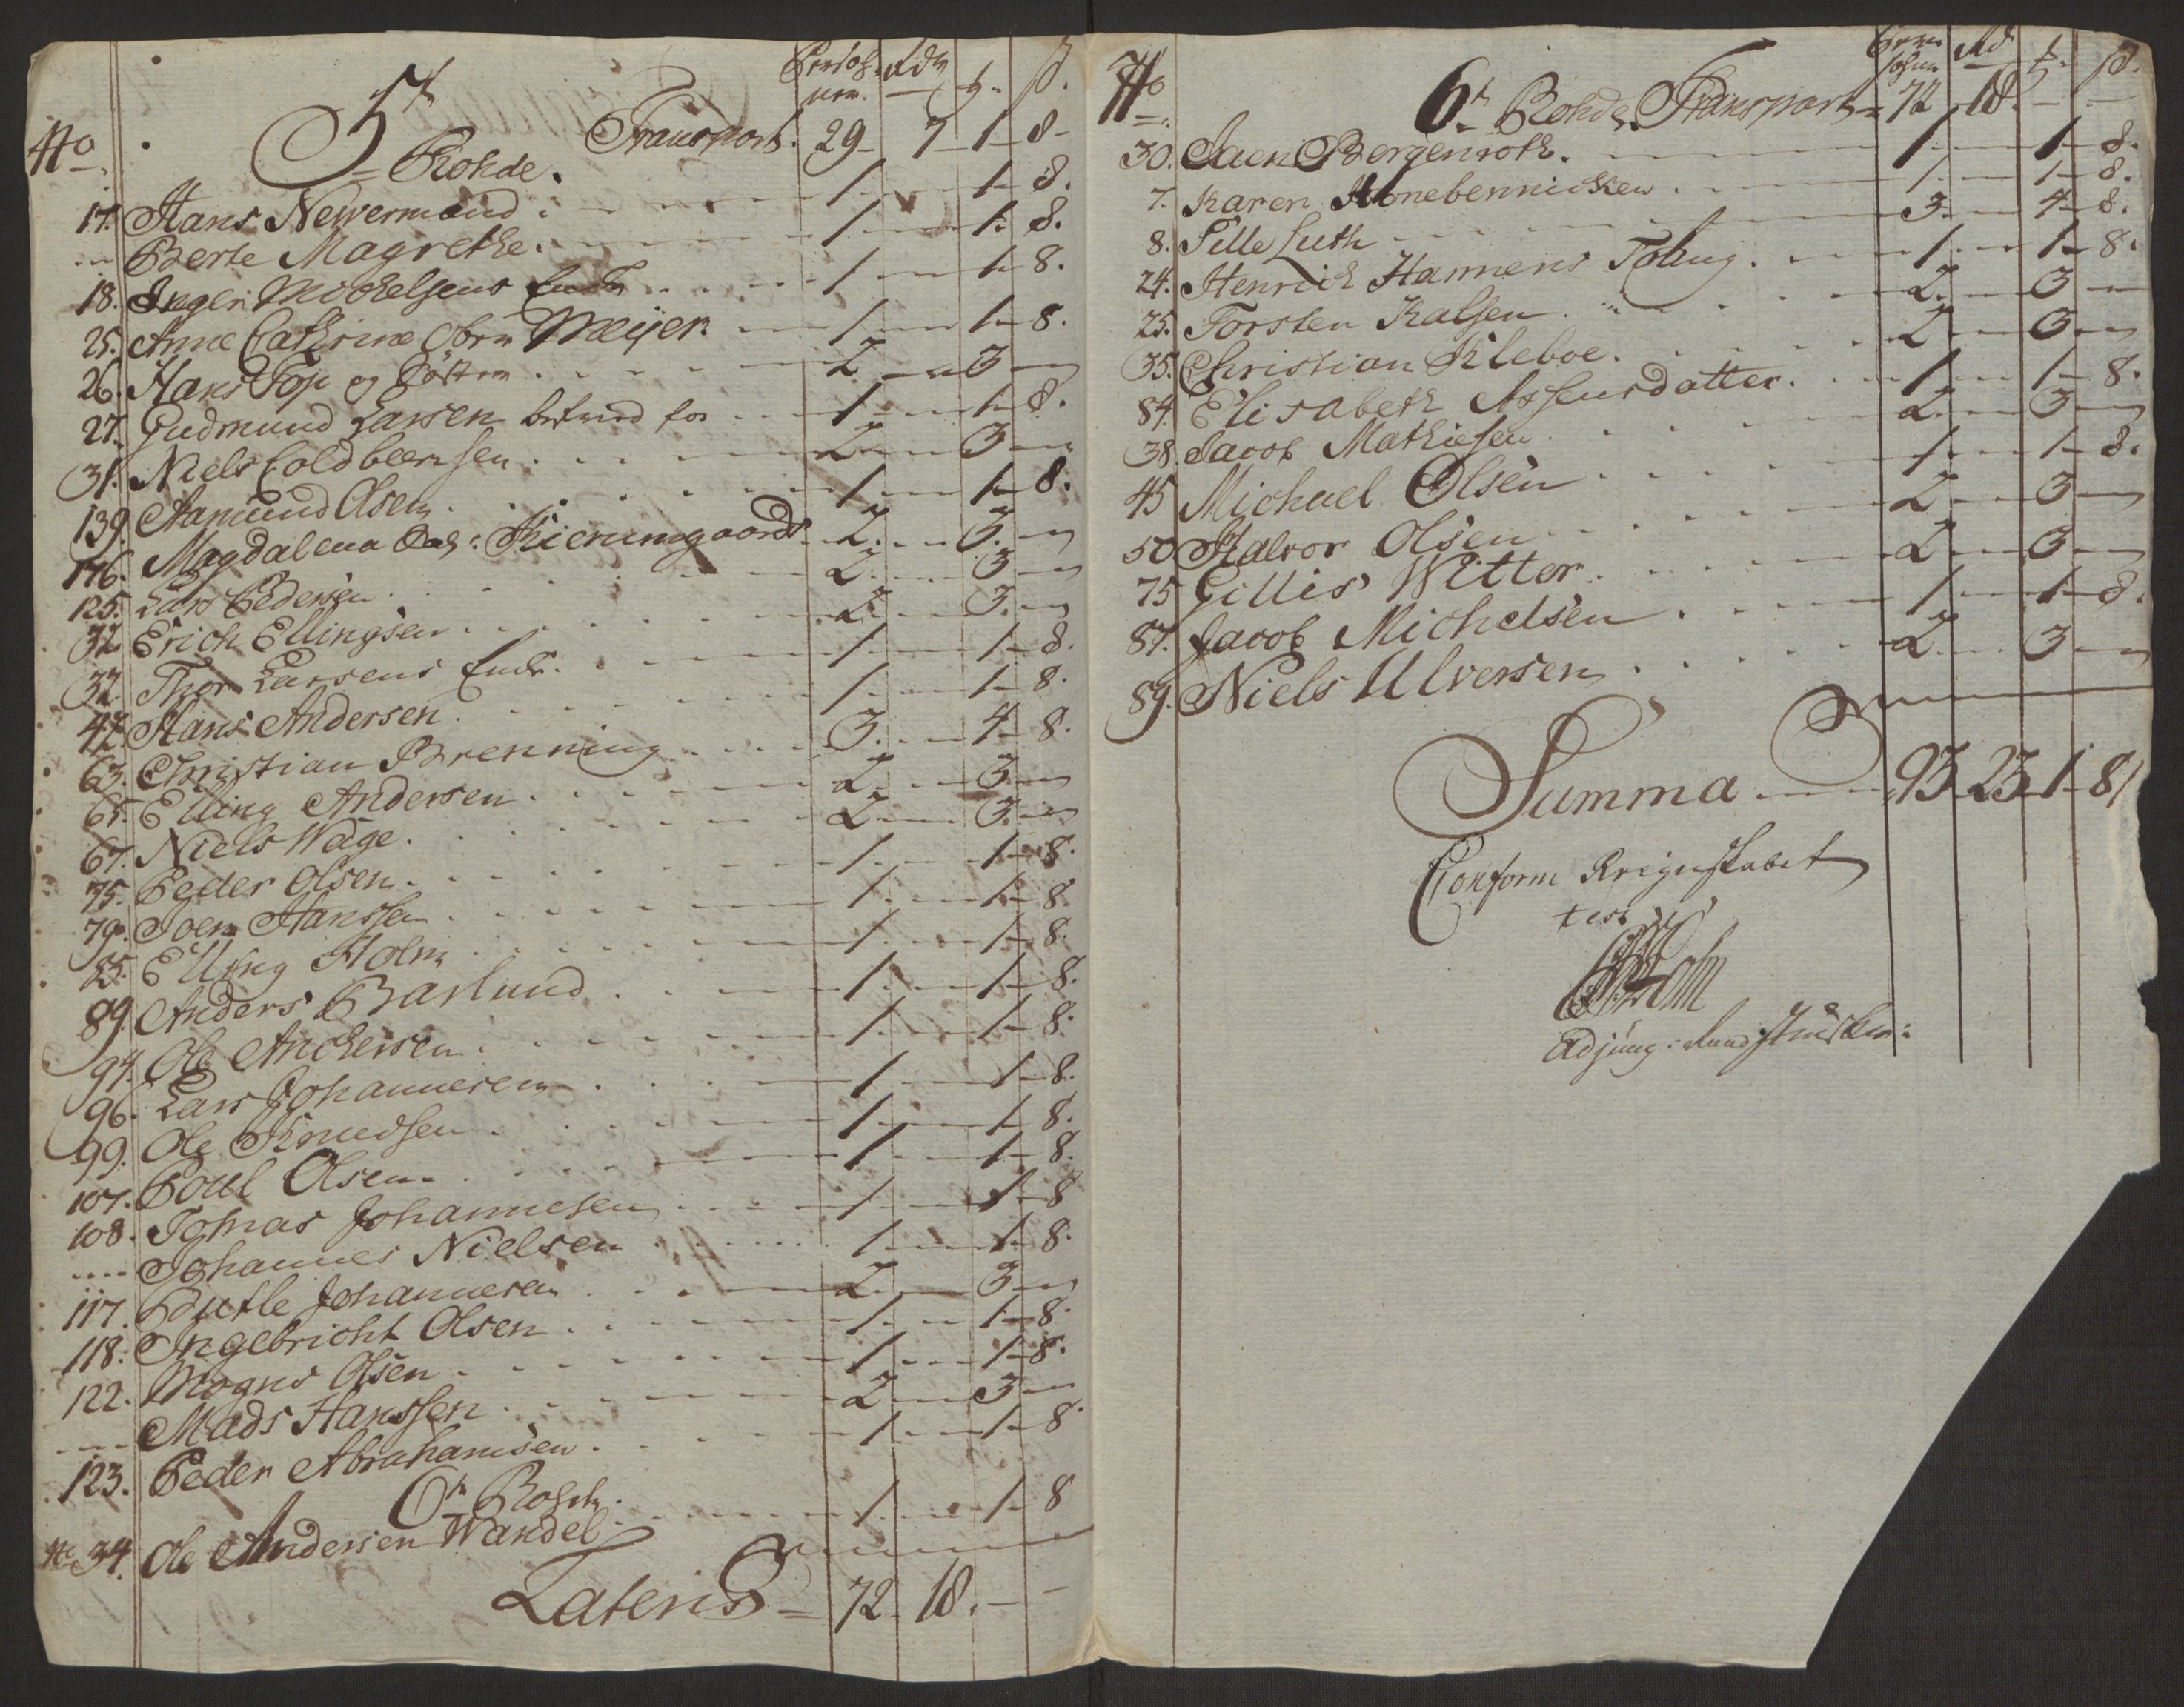 Persoh Rdr
ner. ẞ.
5te
No Transport. 29 - 7 - 1 - 8 -
Rohde.
17. Hans Newermand. 1. 1 - 8.
Berte Magrethe. 1. 1. 8.
18. Inger Mickelsens Encke 1 1 - 8.
25. Anne Cathrine Meijer 1 1 - 8.
26. Hans Top og 2 3
27. Gudmund Larsen 1 1 - 8.
31. Niels Coldbeensen 2 3
139. Aamund Olsen. 1 1 - 8.
176. Magdalena 2. 3.
125. Lars Pedersen 2. 3
32 Erich Ellingsen 2. 3.
32 Thor Larsens Enck. 1. 1 - 8.
47. Hans Andersen. 1. 1 - 8.
63. Christian Brenning 3. 4 - 8.
65. Elling Andersen 2. 3
67. Niels Wage. 2. 3.
75. Peder Olsen. 1. 1 - 8.
79. Joen Hanssen 1. 1 - 8.
85. Elling Holm 1. 1 - 8.
89. Anders Barlund 1. 1 - 8.
94. Ole Anchersen. 1. 1 - 8.
96. Lars Johannesen 1. 1 - 8.
99. Ole Knudsen. 1. 1 - 8.
107. Poul Olsen. 1. 1 - 8.
108. Tomas Johannesen 1. 1 - 8
.... Johannes Nielsen 1. 1 - 8.
117. Johannesen 2. 3
118. Ingebricht Olsen 1. 1 - 8.
122. Mogns Olsen 1. 1 - 8.
---- Mads Hanssen 2. 3
123. Peder Abrahamsen. 1. 1 - 8
6te Rohde.
No 34. Ole Andersen Wandel. 1. 1 - 8
Lateris = 72 - 18. -
Per-
sohner Rd ẞ.
No 6te Rohde. Transport = 72 18.
30. Bergenroth. 1. 1 - 8.
7. Karen Honebennicken 1. 1 - 8.
8. Sille Luth 3. 4 - 8.
24. Henrich Harmens 1. 1 - 8.
25. Torsten Kalsen. 2. 3
35. Christian Kleboe. 2. 3
84. Elisabeth Assensdatter. 1. 1 - 8.
38. Jacob Mathiesen 2. 3
45 Michael Olsen 1. 1 - 8.
50 Halvor Olsen 2. 3
75 Gillis Witter. 2 3
87. Jacob Michelsen 1. 1 - 8.
89. Niels Ulversen 2. 3
Summa 93 - 23 - 1 - 8
Conform Reignskabet
test
Holm
Adjung: